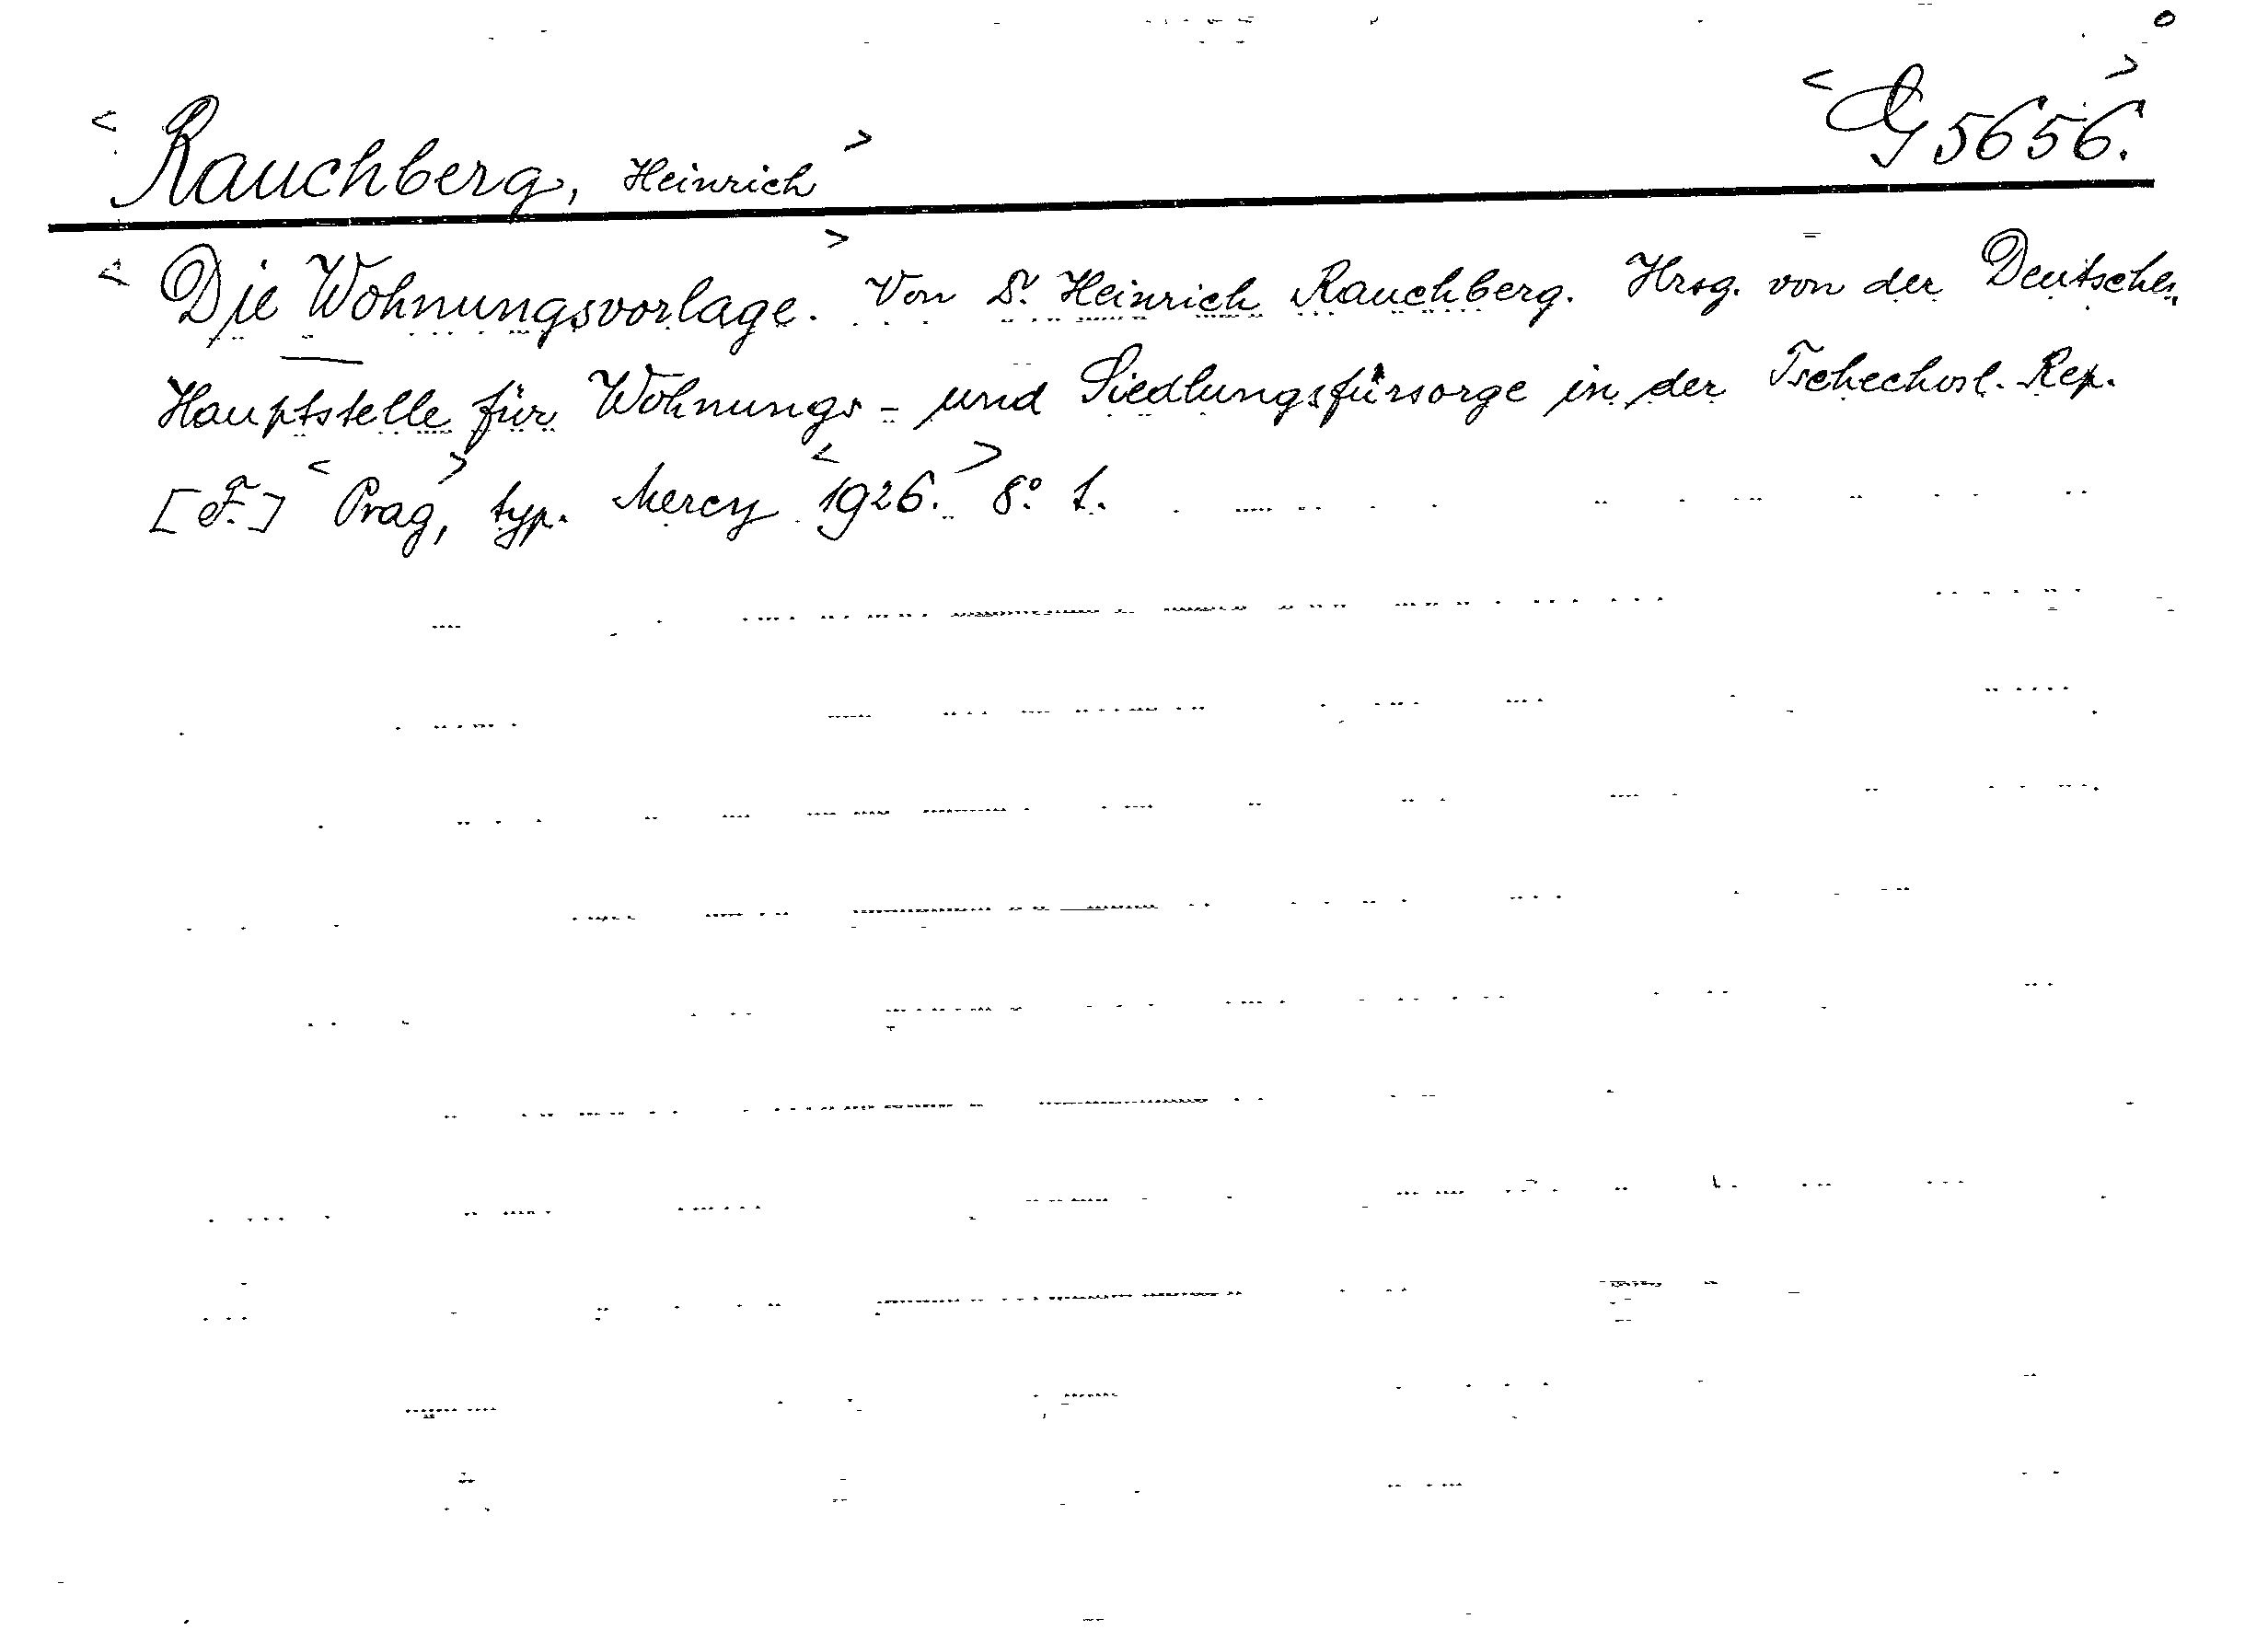 <Rauchberg, Heinrich> <G 5656.>
<Die Wohnungsvorlage.> Von Dr. Heinrich Rauchberg. Hrsg. von der Deutschen
Hauptstelle für Wohnungs- und Siedlungsfürsorge in der Tschechosl. Rep.
[F.] <Prag>, typ. Mercy <1926.> 8° 1.